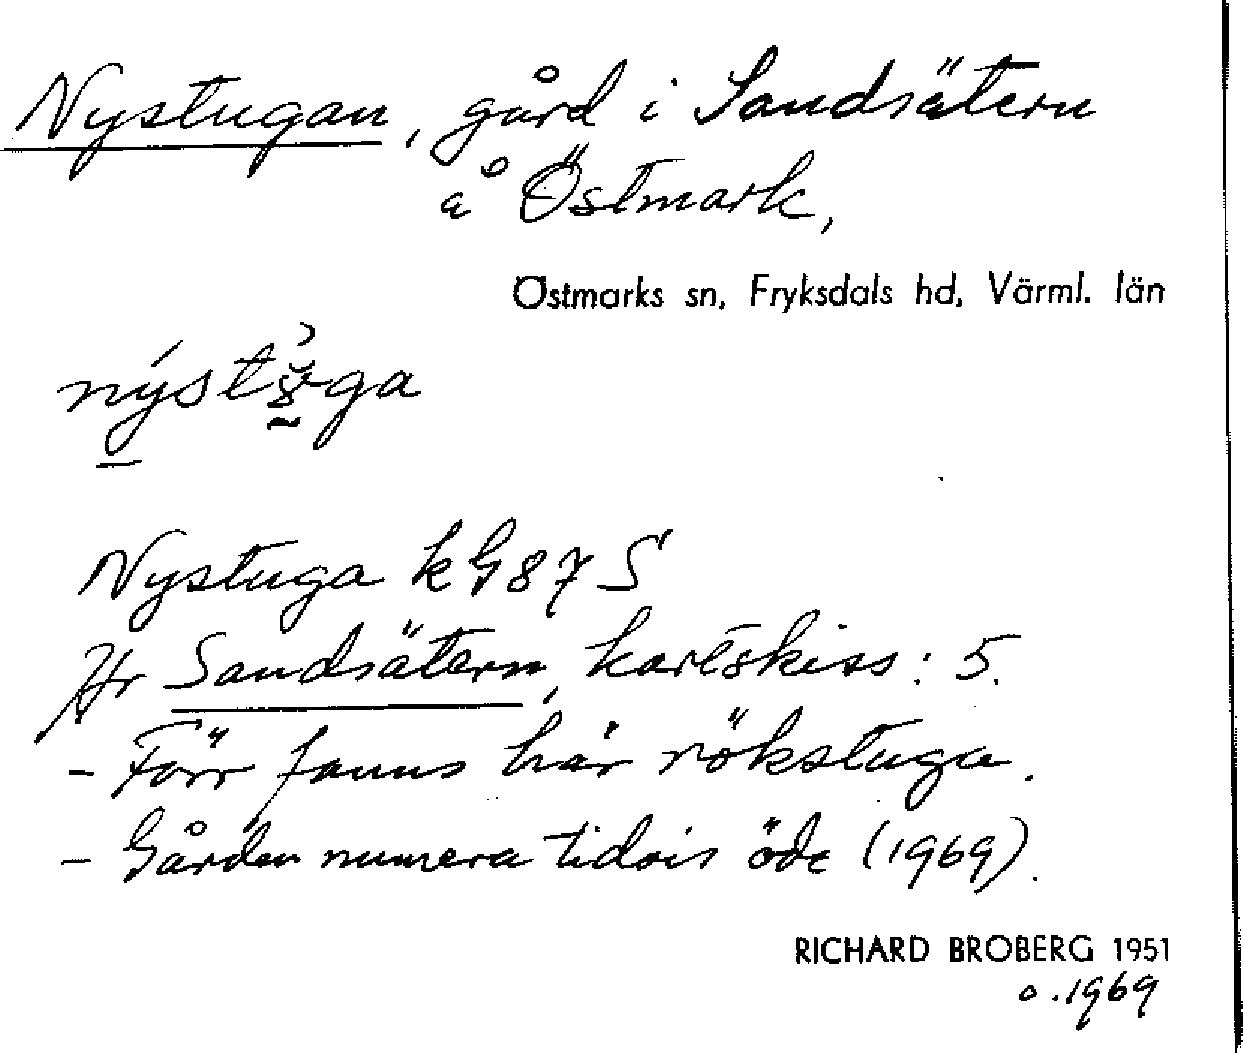 Nystugan, gård i Sandsätern
å Östmark,
Östmarks sn, Fryksdals hd, Värml. län
Nystuga k G 87 S
Jfr Sandsätern, kartskiss: 5.
- Förr fanns här rökstuga.
- Gården numera tidvis öde (1969).
RICHARD BROBERG 1951
o. 1969